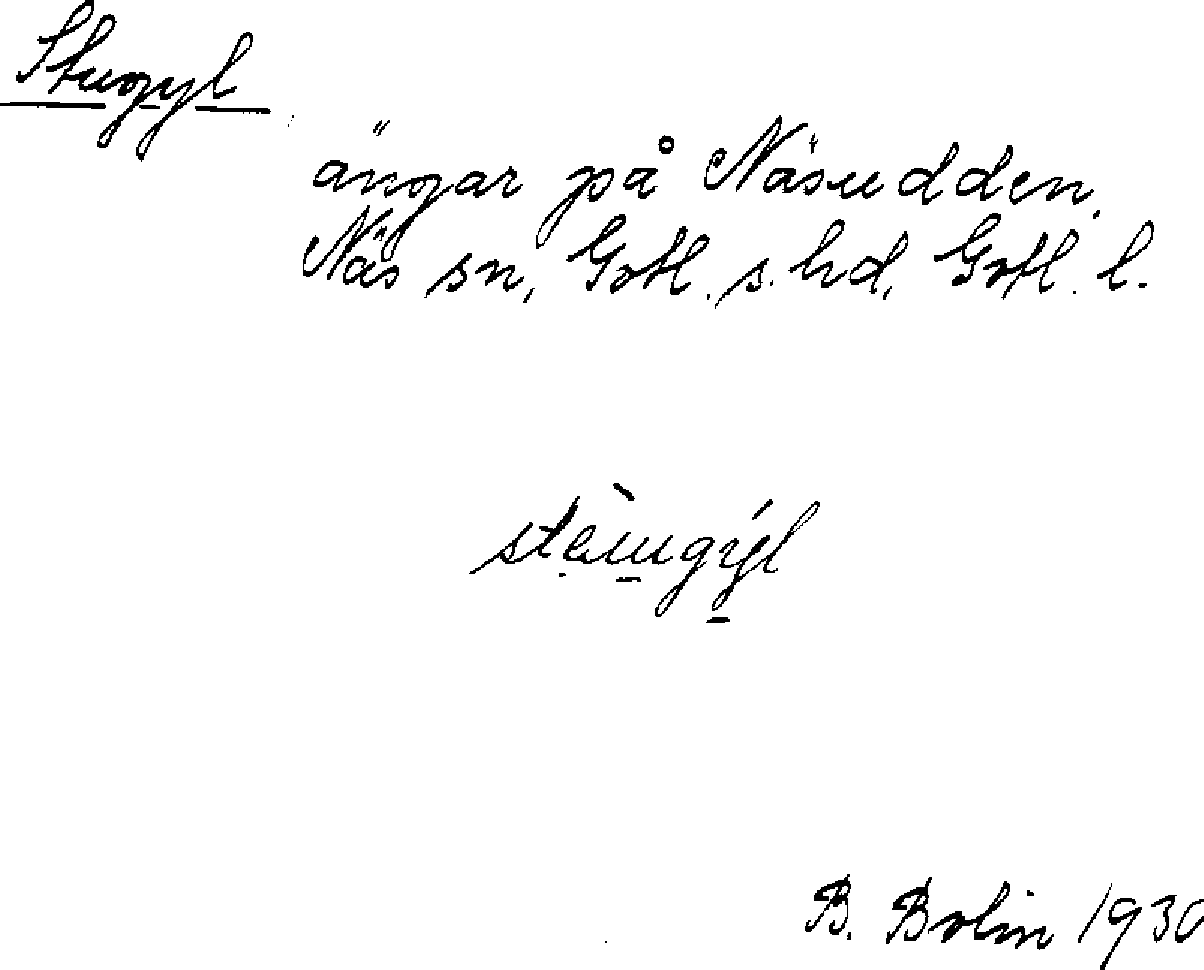 Stugyl
ängar på Näsudden.
Näs sn, Gotl. s. hd, Gotl. l.
B. Bolin 1930